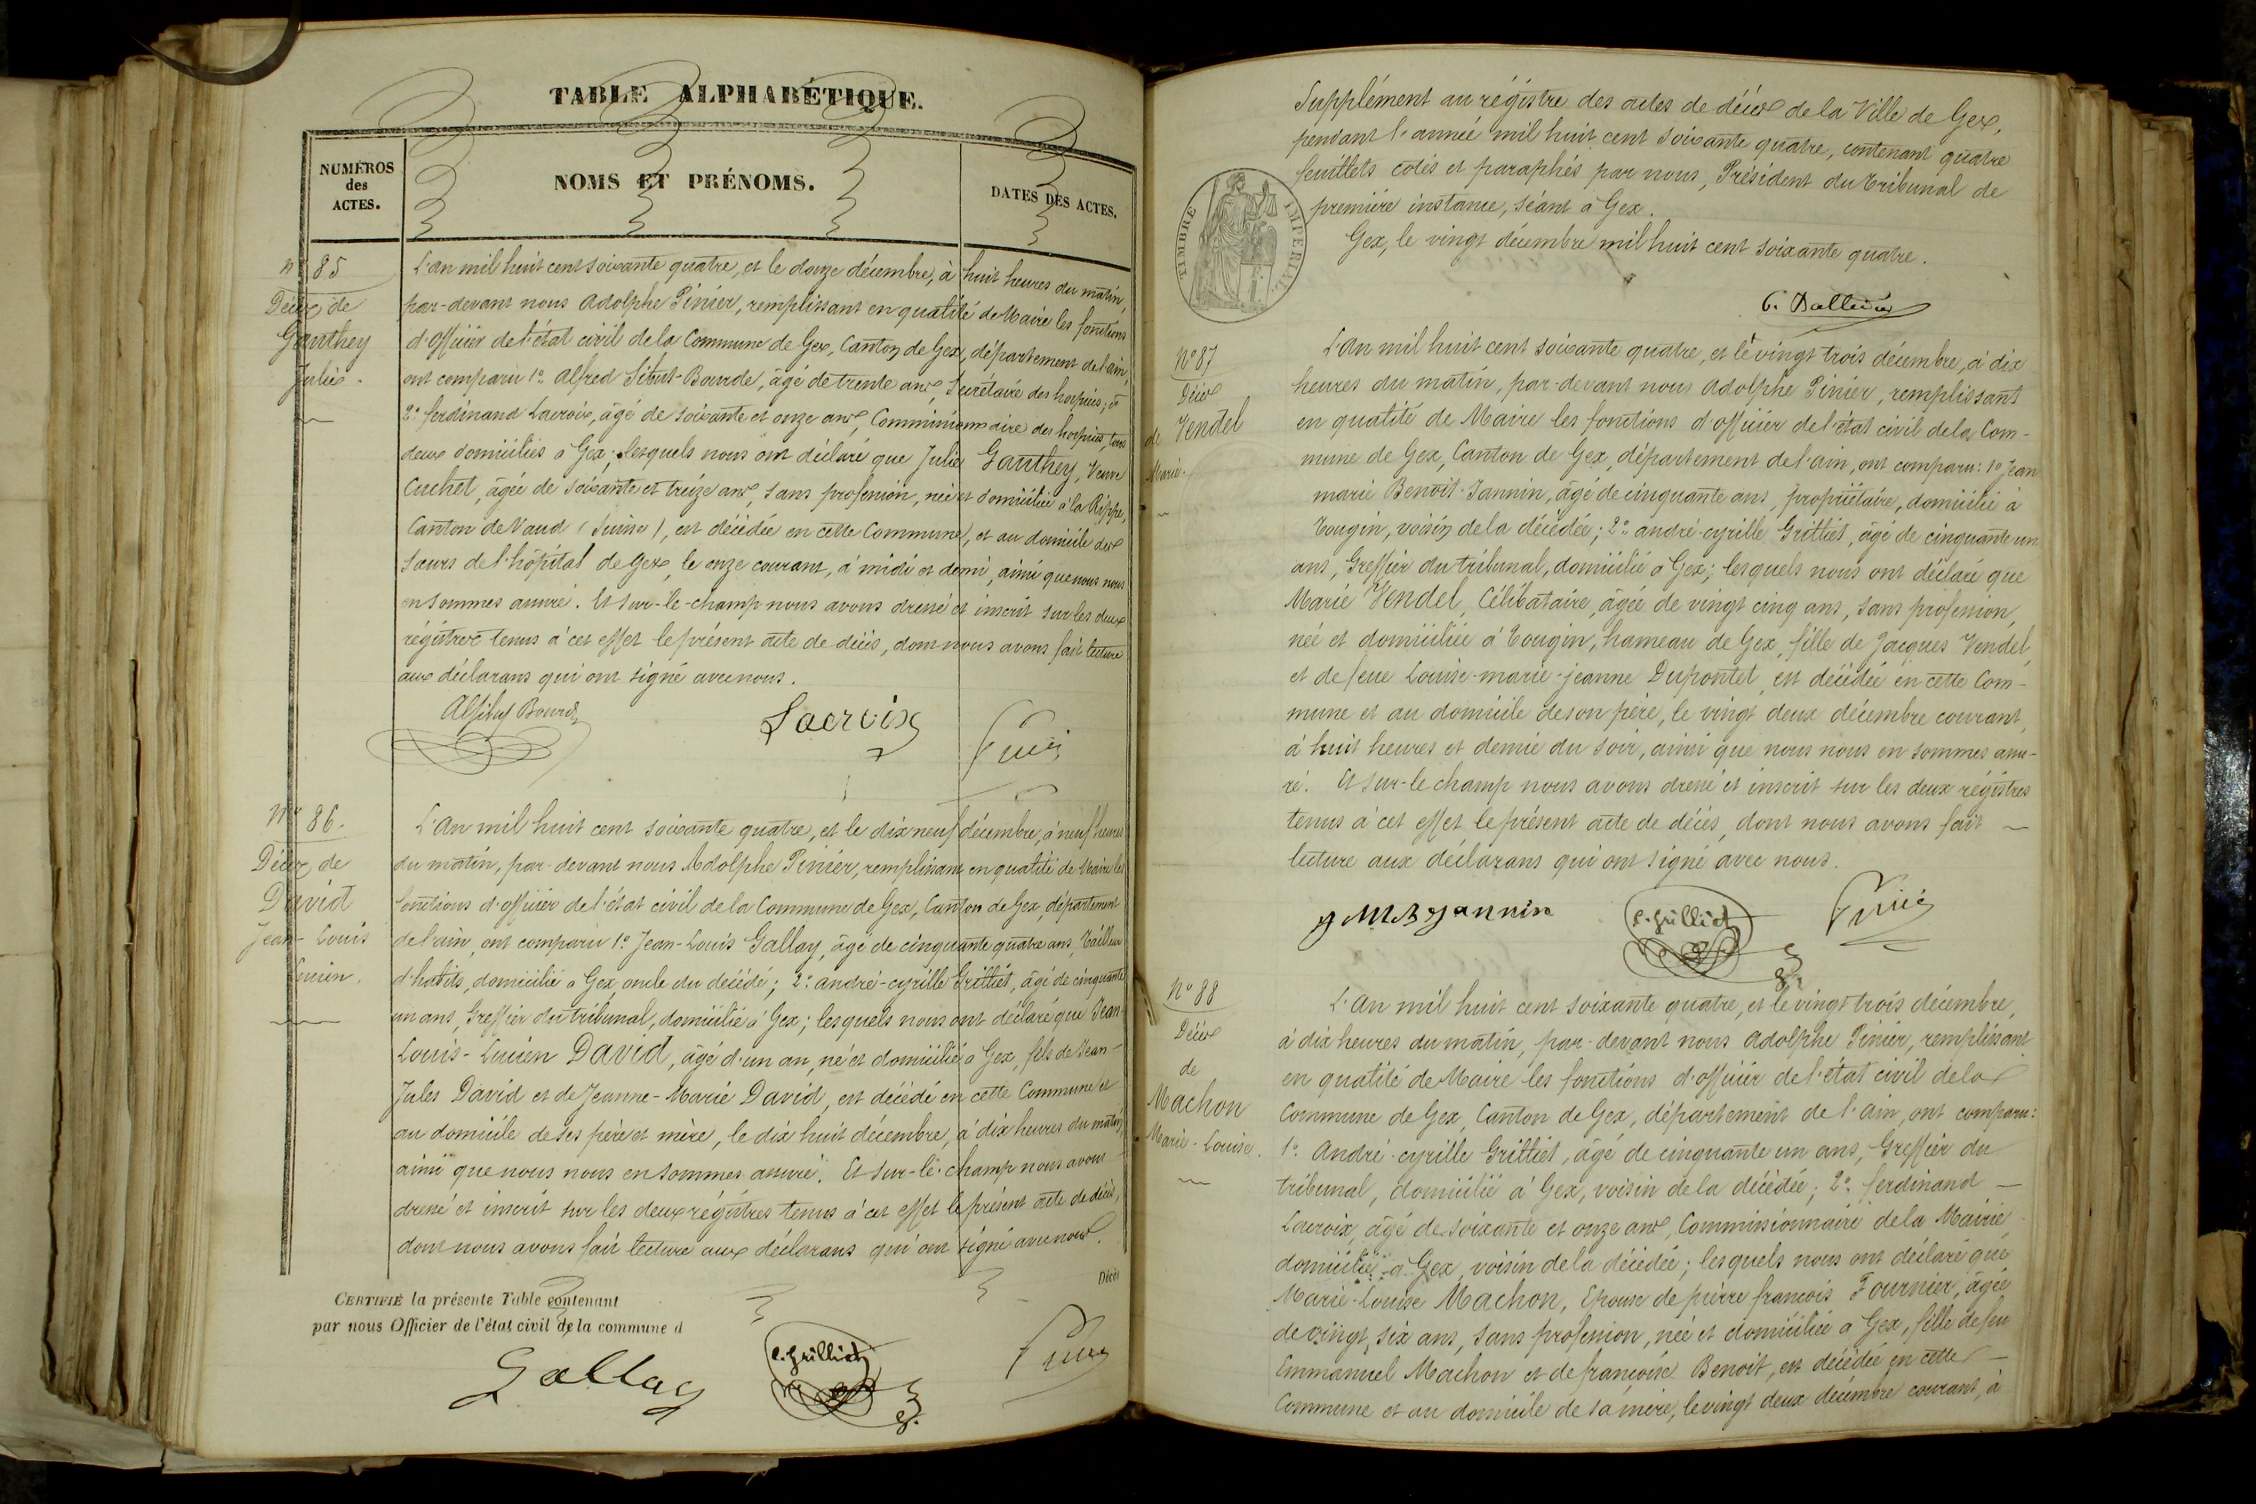 TABLE ALPHABÉTIQUE.
NUMÉROS
des
ACTES.
NOMS ET PRÉNOMS.
DATES DES ACTES.
No 85
Décès de
Gauthey
Julie.
L'an mil huit cent soixante quatre, et le douze décembre, à huit heures du matin,
par-devant nous Adolphe Pinier, remplissant en qualité de Maire les fonctions
d'officier de l'état civil de la Commune de Gex, Canton de Gex, département de l'ain,
ont comparu 1o Alfred Sibut-Bourde, âgé de trente ans, Secrétaire des hospices, et
2o ferdinand Lacroix, âgé de soixante et onze ans, Commissionnaire des hospices, tous
deux domiciliés à Gex; lesquels nous ont déclaré que Julie Gauthey, Veuve
Cuchet, âgée de soixante et treize ans, sans profession, née et domiciliée à la Rippe,
Canton de Vaud (Suisse), est décédée en cette Commune, et au domicile des
Sœurs de l'hôpital de Gex, le onze courant, à midi et demi, ainsi que nous nous
en sommes assuré. Et sur-le-champ nous avons dressé et inscrit sur les deux
régistres tenus à cet effet le présent acte de décès, dont nous avons fait lecture
aux déclarans qui ont signé avec nous.
Lacroix
No 86.
Décès de
David
Jean-Louis
Lucien.
L'An mil huit cent soixante quatre, et le dix neuf décembre, à neuf heures
du matin, par-devant nous Adolphe Pinier, remplissant en qualité de Maire les
fonctions d'officier de l'état civil de la Commune de Gex, Canton de Gex, département
de l'ain, ont comparu 1o Jean-Louis Gallay, âgé de cinquante quatre ans, Tailleur
d'habits, domicilié à Gex, oncle du décédé; 2o andré-cyrille Grilliet, âgé de cinquante
un ans, Greffier du tribunal, domicilié à Gex; lesquels nous ont déclaré que Jean-
Louis-Lucien David, âgé d'un an, né et domicilié à Gex, fils de Jean-
Jules David et de Jeanne-Marie David, est décédé en cette Commune et
au domicile de ses père et mère, le dix huit décembre, à dix heures du matin,
ainsi que nous nous en sommes assuré. Et sur-le-champ nous avons
dressé et inscrit sur les deux régistres tenus à cet effet le présent acte de décès,
dont nous avons fait lecture aux déclarans qui ont signé avec nous.
Décès
CERTIFIÉ la présente Table contenant
par nous Officier de l'état civil de la commune d
Gallay
C. Grilliet
Supplément au régistre des actes de décès de la Ville de Gex,
pendant l'année mil huit cent soixante quatre, contenant quatre
feuillets cotés et paraphés par nous, Président du tribunal de
première instance, séant à Gex.
Gex, le vingt décembre mil huit cent soixante quatre.
TIMBRE IMPÉRIAL
No 87
Décès
de Vendel
Marie.
L'An mil huit cent soixante quatre, et le vingt trois décembre, à dix
heures du matin, par-devant nous Adolphe Pinier, remplissant
en qualité de Maire les fonctions d'officier de l'état civil de la Com-
mune de Gex, Canton de Gex, département de l'ain, ont comparu: 1o Jean
marie Benoit-Jannin, âgé de cinquante ans, propriétaire, domicilié à
Tougin, voisin de la décédée; 2o andré-cyrille Grilliet, âgé de cinquante un
ans, Greffier du tribunal, domicilié à Gex; lesquels nous ont déclaré que
Marie Vendel, Célibataire, âgée de vingt cinq ans, sans profession,
née et domiciliée à Tougin, hameau de Gex, fille de Jacques Vendel,
et de feue Louise-marie-jeanne Dupontet, est décédée en cette Com-
mune et au domicile de son père, le vingt deux décembre courant,
à huit heures et demie du soir, ainsi que nous nous en sommes assu-
ré. Et sur-le champ nous avons dressé et inscrit sur les deux régistres
tenus à cet effet le présent acte de décès, dont nous avons fait
lecture aux déclarans qui ont signé avec nous.
J M B Jannin
C. Grilliet
No 88
Décès
de
Machon
Marie-Louise.
L'An mil huit cent soixante quatre, et le vingt trois décembre,
à dix heures du matin, par-devant nous Adolphe Pinier, remplissant
en qualité de Maire les fonctions d'officier de l'état civil de la
Commune de Gex, Canton de Gex, département de l'ain, ont comparu:
1o André-cyrille Grilliet, âgé de cinquante un ans, Greffier du
tribunal, domicilié à Gex, voisin de la décédée; 2o ferdinand
Lacroix, âgé de soixante et onze ans, Commissionnaire de la Mairie,
domicilié à Gex, voisin de la décédée; lesquels nous ont déclaré que
Marie-Louise Machon, Epouse de pierre françois Fournier, âgée
de vingt six ans, sans profession, née et domiciliée à Gex, fille de feu
Emmanuel Machon et de françoise Benoit, est décédée en cette
Commune et au domicile de sa mère, le vingt deux décembre courant, à